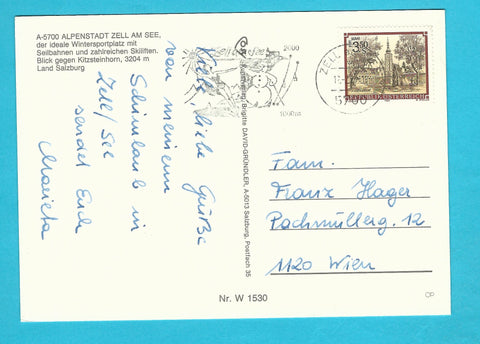 A-5700 ALPENSTADT ZELL AM SEE,
der ideale Wintersportplatz mit
Seilbahnen und zahlreichen Skiliften.
Blick gegen Kitzsteinhorn, 3204 m
Land Salzburg
Viele liebe Grüße
von meinem
Schiurlaub in
Zell/See
sendet Euch
Brigitte DAVID-GRÜNDLER, A-5013 Salzburg, Postfach 35
2000
ZELL
5700
3.50
REPUBLIK ÖSTERREICH
Fam.
Franz Hager
Pachmüllerg. 12
1120 Wien
Nr. W 1530